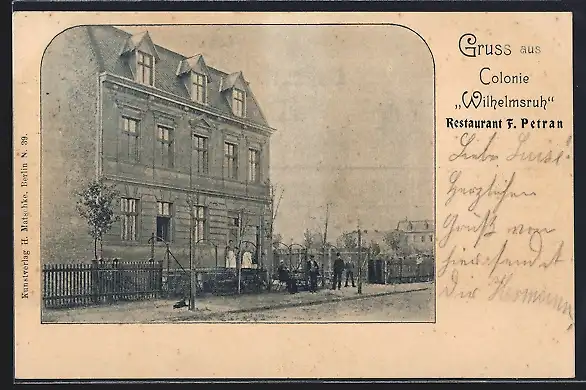 Gruss aus
Colonie
„Wilhelmsruh"
Restaurant F. Petran
Liebe Luise!
Herzlichen
Gruß von
hier sendet
Dir Hermann
Kunstverlag H. Matschke, Berlin N. 39.